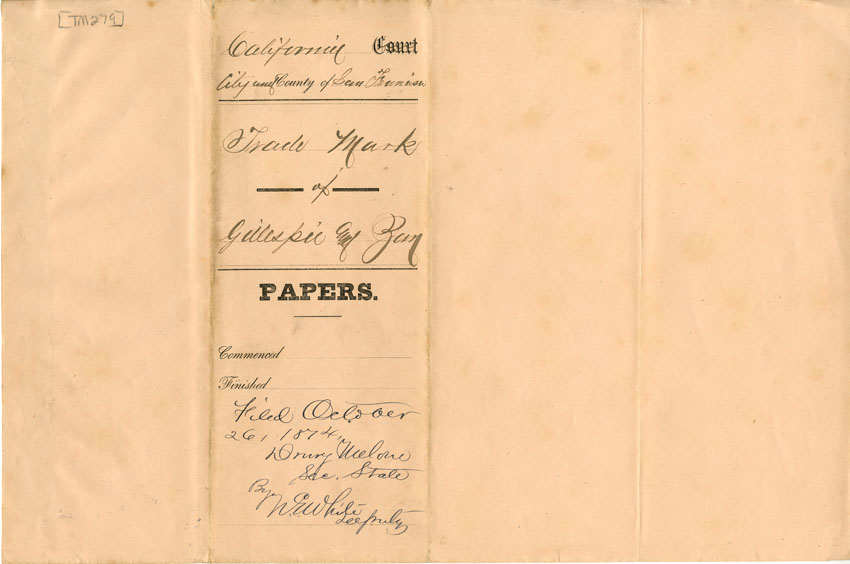 [TM279]
California Court
City and County of San Francisco
Trade Mark
of
Gillespie and Zan
PAPERS.
Commenced
Finished
Filed October
26, 1874,
Drury Melone
Sec. State
By W. E. White
Deputy